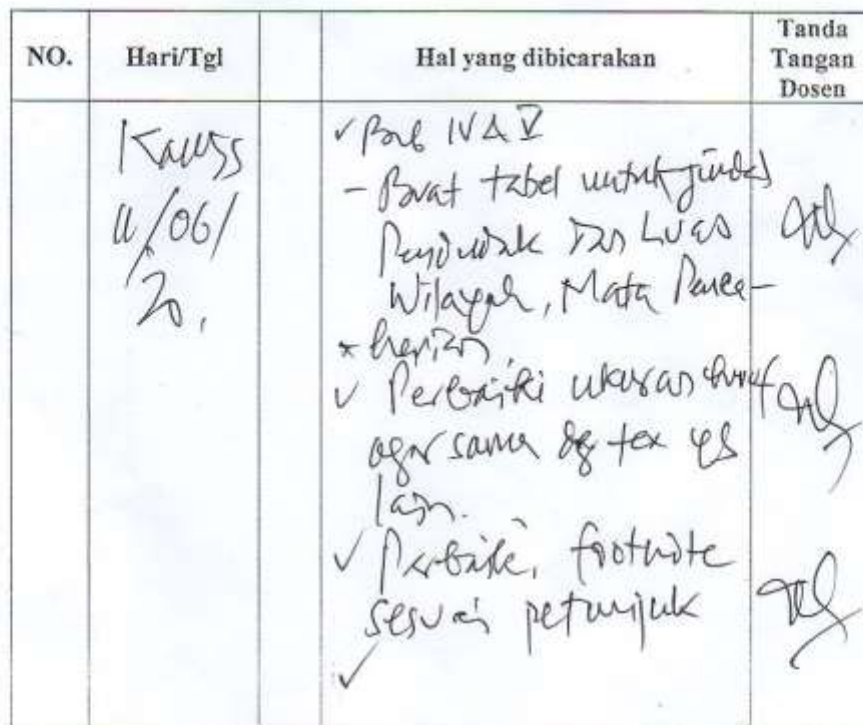 NO. Hari/Tgl Hal yang dibicarakan Tanda Tangan Dosen
Kamis
11/06/
20.
✓ Bab IV & V
- Buat tabel untuk jumlah
Penduduk dan Luas
Wilayah, Mata Penca-
harian.
✓ Perbaiki ukuran huruf
agar sama dg tex yg
lain.
✓ Perbaiki footnote
sesuai petunjuk
✓